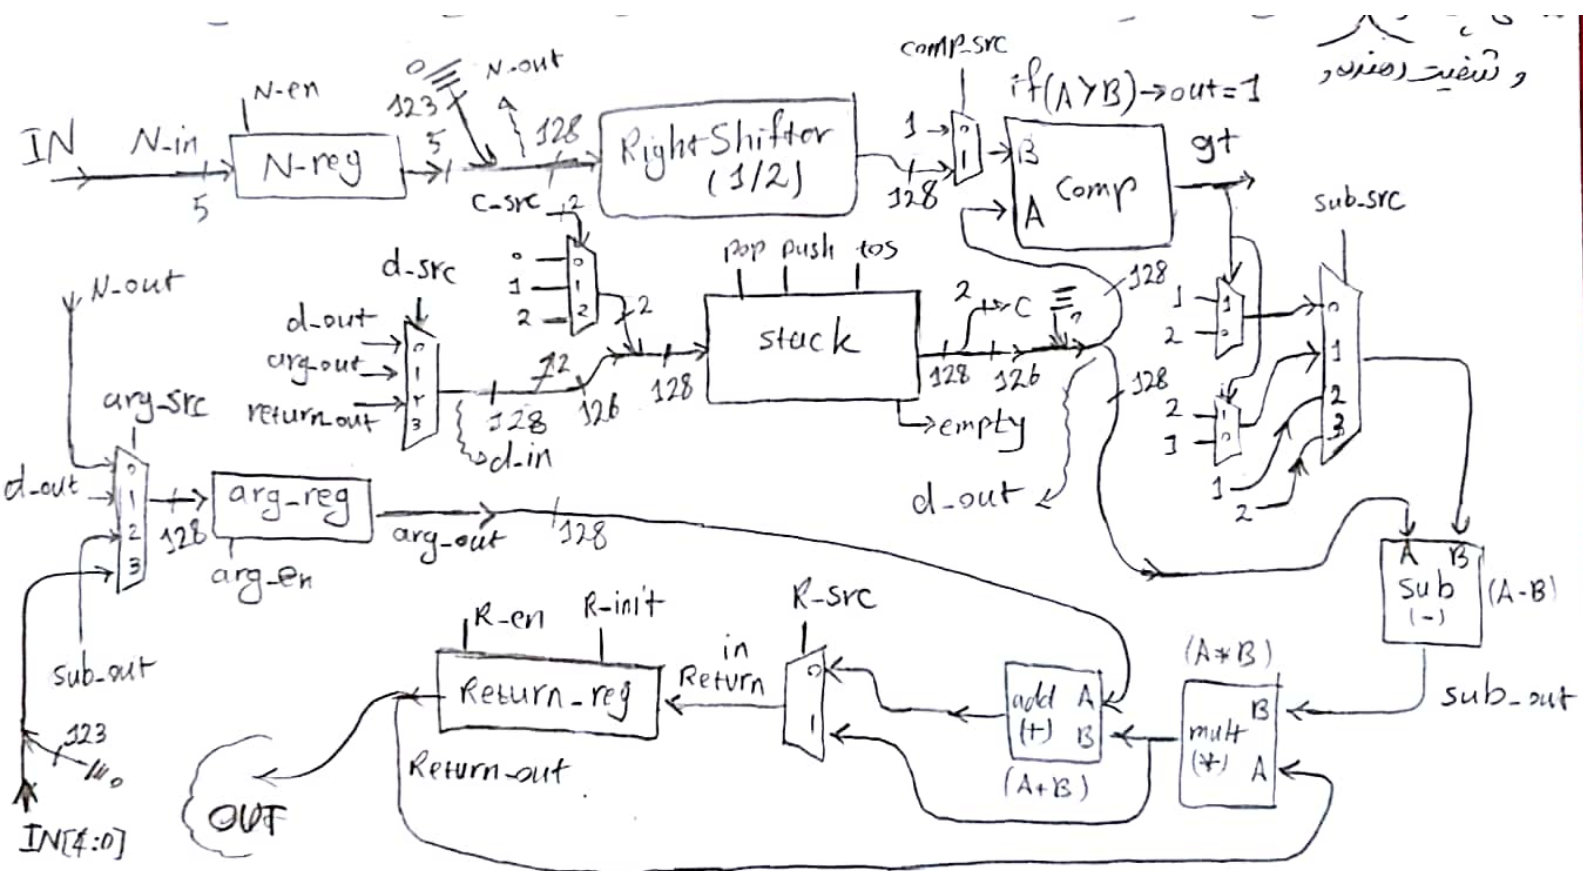 و تثبیت رهندر و
comp_src
if(A>B)→out=1
N-en
0
N-out
123
IN
N-in
5
N-reg
5
128
Right Shifter
(1/2)
128
1
0
1
B
A
Comp
gt
sub_src
C_src
2
0
1
2
0
1
2
2
d-src
d-out
arg-out
return_out
0
1
2
3
128
2
126
128
d-in
pop push tos
stack
128
2
C
126
128
empty
d-out
128
1
2
1
0
2
3
1
0
1
2
0
1
2
3
N-out
arg_src
d-out
0
1
2
3
128
arg_reg
arg_en
arg-out
128
sub_out
123
0
IN[4:0]
R-en
R-init
Return_reg
Return_out
OUT
in
Return
R-src
0
1
add
(+)
A
B
(A+B)
(A*B)
mult
(*)
B
A
A B
sub
(-)
(A-B)
sub_out